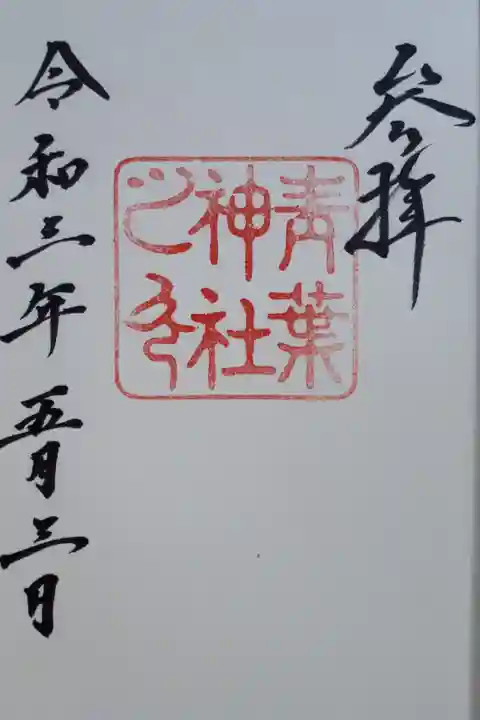 参拝
青葉
神社
之印
令和三年五月三日